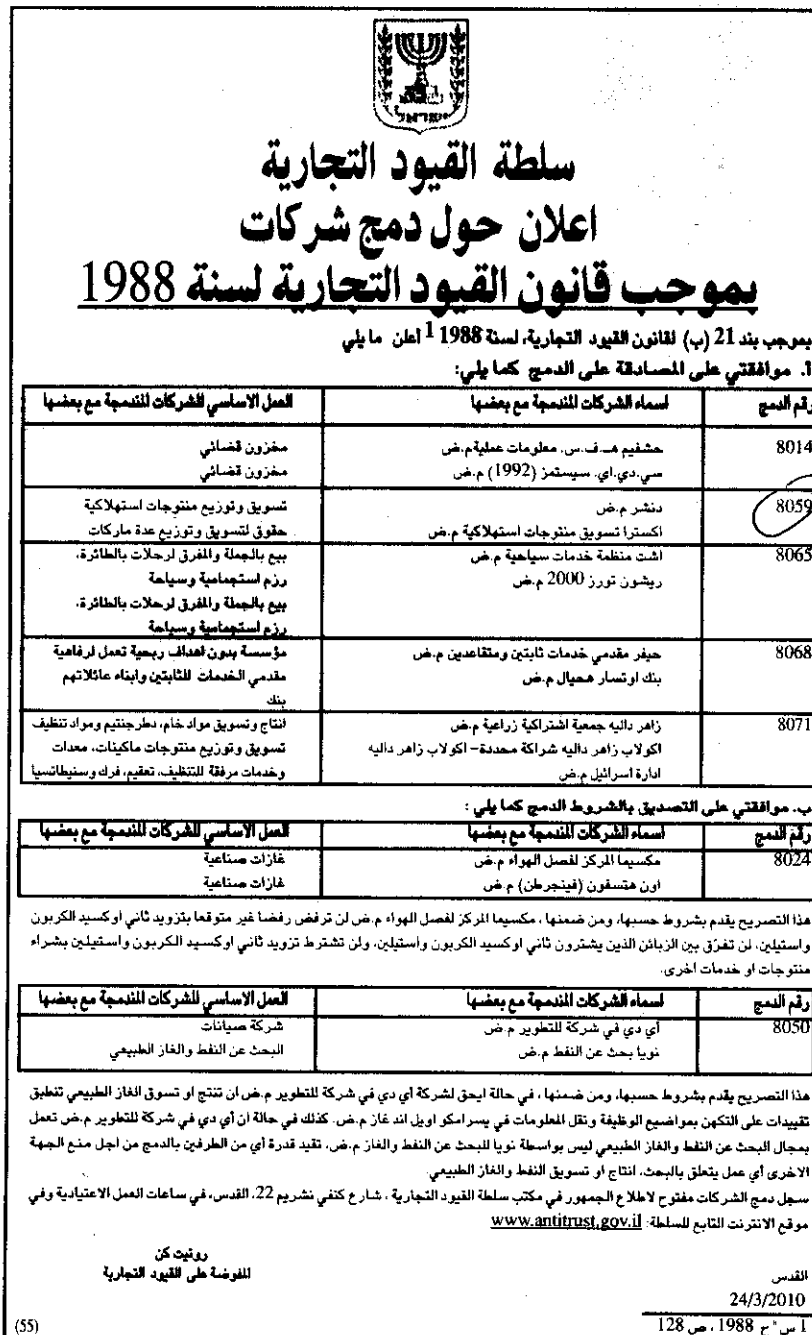 سلطة القيود التجارية
اعلان حول دمج شركات
بموجب قانون القيود التجارية لسنة 1988
بموجب بند 21 (ب) لقانون القيود التجارية، لسنة 1988 1 أعلن ما يلي
أ. موافقتي على المصادقة على الدمج كما يلي:
رقم الدمج اسماء الشركات المندمجة مع بعضها العمل الاساسي للشركات المندمجة مع بعضها
8014 حشفيم هـ.ف.س. معلومات عملية م.ض مخزون قضائي
سي.دي.اي. سيستمز (1992) م.ض مخزون قضائي
8059 دنشر م.ض تسويق وتوزيع منتوجات استهلاكية
اكسترا تسويق منتوجات استهلاكية م.ض حقوق لتسويق وتوزيع عدة ماركات
8065 اشت منظمة خدمات سياحية م.ض بيع بالجملة والمفرق لرحلات بالطائرة،
ريشون تورز 2000 م.ض رزم استجمامية وسياحة
بيع بالجملة والمفرق لرحلات بالطائرة،
رزم استجمامية وسياحة
8068 حيفر مقدمي خدمات ثابتين ومتقاعدين م.ض مؤسسة بدون اهداف ربحية تعمل لرفاهية
بنك اوتسار هحيال م.ض مقدمي الخدمات الثابتين وأبناء عائلاتهم
بنك
8071 زاهر داليه جمعية اشتراكية زراعية م.ض انتاج وتسويق مواد خام، دطرجنتيم ومواد تنظيف
اكولاب زاهر داليه شراكة محددة – اكولاب زاهر داليه تسويق وتوزيع منتوجات ماكينات، معدات
ادارة اسرائيل م.ض وخدمات مرفقة للتنظيف، تعقيم، فرك وسنيطاتسيا
ب. موافقتي على التصديق بالشروط الدمج كما يلي :
رقم الدمج اسماء الشركات المندمجة مع بعضها العمل الاساسي للشركات المندمجة مع بعضها
8024 مكسيما المركز لفصل الهواء م.ض غازات صناعية
اون هتسفون (فينجرطن) م.ض غازات صناعية
هذا التصريح يقدم بشروط حسبها، ومن ضمنها ، مكسيما المركز لفصل الهواء م.ض لن ترفض رفضا غير متوقعا بتزويد ثاني أوكسيد الكربون
واستيلين، لن تفرّق بين الزبائن الذين يشترون ثاني اوكسيد الكربون وأستيلين، ولن تشترط تزويد ثاني اوكسيد الكربون واستيلين بشراء
منتوجات او خدمات اخرى.
رقم الدمج اسماء الشركات المندمجة مع بعضها العمل الاساسي للشركات المندمجة مع بعضها
8050 أي دي في شركة للتطوير م.ض شركة صيانات
نويا بحث عن النفط م.ض البحث عن النفط والغاز الطبيعي
هذا التصريح يقدم بشروط حسبها، ومن ضمنها ، في حالة ايحق لشركة أي دي في شركة للتطوير م.ض ان تنتج او تسوق الغاز الطبيعي تنطبق
تقييدات على التكهن بمواضيع الوظيفة ونقل المعلومات في يسرامكو اويل اند غاز م.ض. كذلك في حالة ان أي دي في شركة للتطوير م.ض تعمل
بمجال البحث عن النفط والغاز الطبيعي ليس بواسطة نويا للبحث عن النفط والغاز م.ض، تقيد قدرة أي من الطرفين بالدمج من اجل منع الجهة
الاخرى أي عمل يتعلق بالبحث، انتاج او تسويق النفط والغاز الطبيعي.
سجل دمج الشركات مفتوح لاطلاع الجمهور في مكتب سلطة القيود التجارية ، شارع كنفي نشريم 22، القدس، في ساعات العمل الاعتيادية وفي
موقع الانترنت التابع للسلطة: www.antitrust.gov.il
رونيت كن
المفوضة على القيود التجارية
القدس
24/3/2010
1 س"ح 1988 ، ص 128
(55)